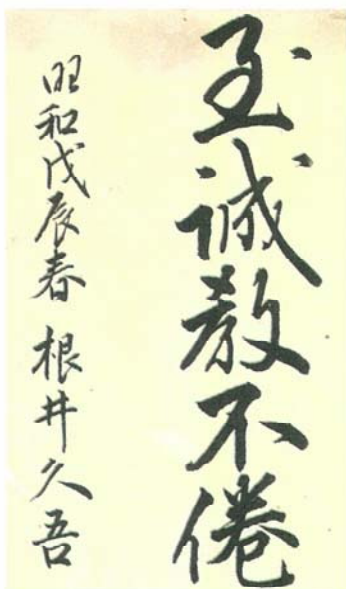 至誠教不倦
昭和戊辰春 根井久吾